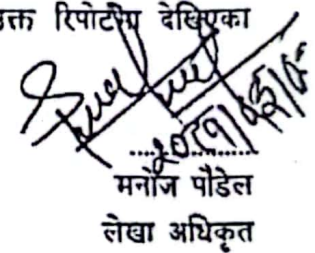 उक्त रिपोर्टमा देखिएका
मनोज पौडेल
लेखा अधिकृत